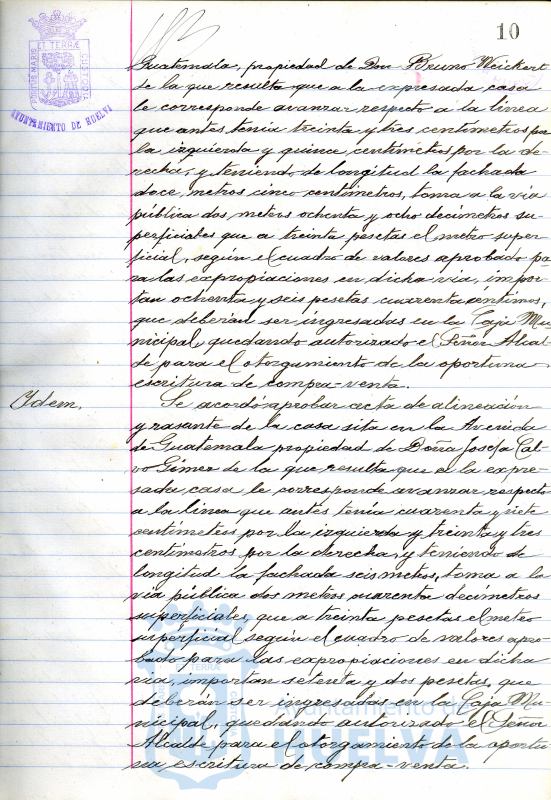 10
PORTUS MARIS ET TERRÆ CUSTODIA
AYUNTAMIENTO DE HUELVA
Guatemala, propiedad de Don Bruno Weickert
de la que resulta que a la expresada casa
le corresponde avanzar respecto a la linea
que antes tenía treinta y tres centímetros por
la izquierda y quince centímetros por la de-
recha, y teniendo de longitud la fachada
doce metros cinco centímetros, toma a la vía
pública dos metros ochenta y ocho decímetros su-
perficiales que a treinta pesetas el metro super-
ficial, según el cuadro de valores aprobado pa-
ra las expropiaciones en dicha vía, impor-
tan ochenta y seis pesetas cuarenta céntimos,
que deberán ser ingresadas en la Caja Mu-
nicipal, quedando autorizado el Señor Alcal-
de para el otorgamiento de la oportuna
escritura de compra-venta.
Ydem.
Se acordó aprobar acta de alineación
y rasante de la casa sita en la Avenida
de Guatemala propiedad de Doña Josefa Cal-
vo Gómez de la que resulta que a la expre-
sada casa le corresponde avanzar respecto
a la linea que antes tenía cuarenta y siete
centímetros por la izquierda y treinta y tres
centímetros por la derecha, y teniendo de
longitud la fachada seis metros, toma a la
vía pública dos metros cuarenta decímetros
superficiales, que a treinta pesetas el metro
superficial según el cuadro de valores apro-
bado para las expropiaciones en dicha
vía, importan setenta y dos pesetas, que
deberán ser ingresadas en la Caja Mu-
nicipal, quedando autorizado el Señor
Alcalde para el otorgamiento de la oportu-
na escritura de compra-venta.
Ayuntamiento de
HUELVA